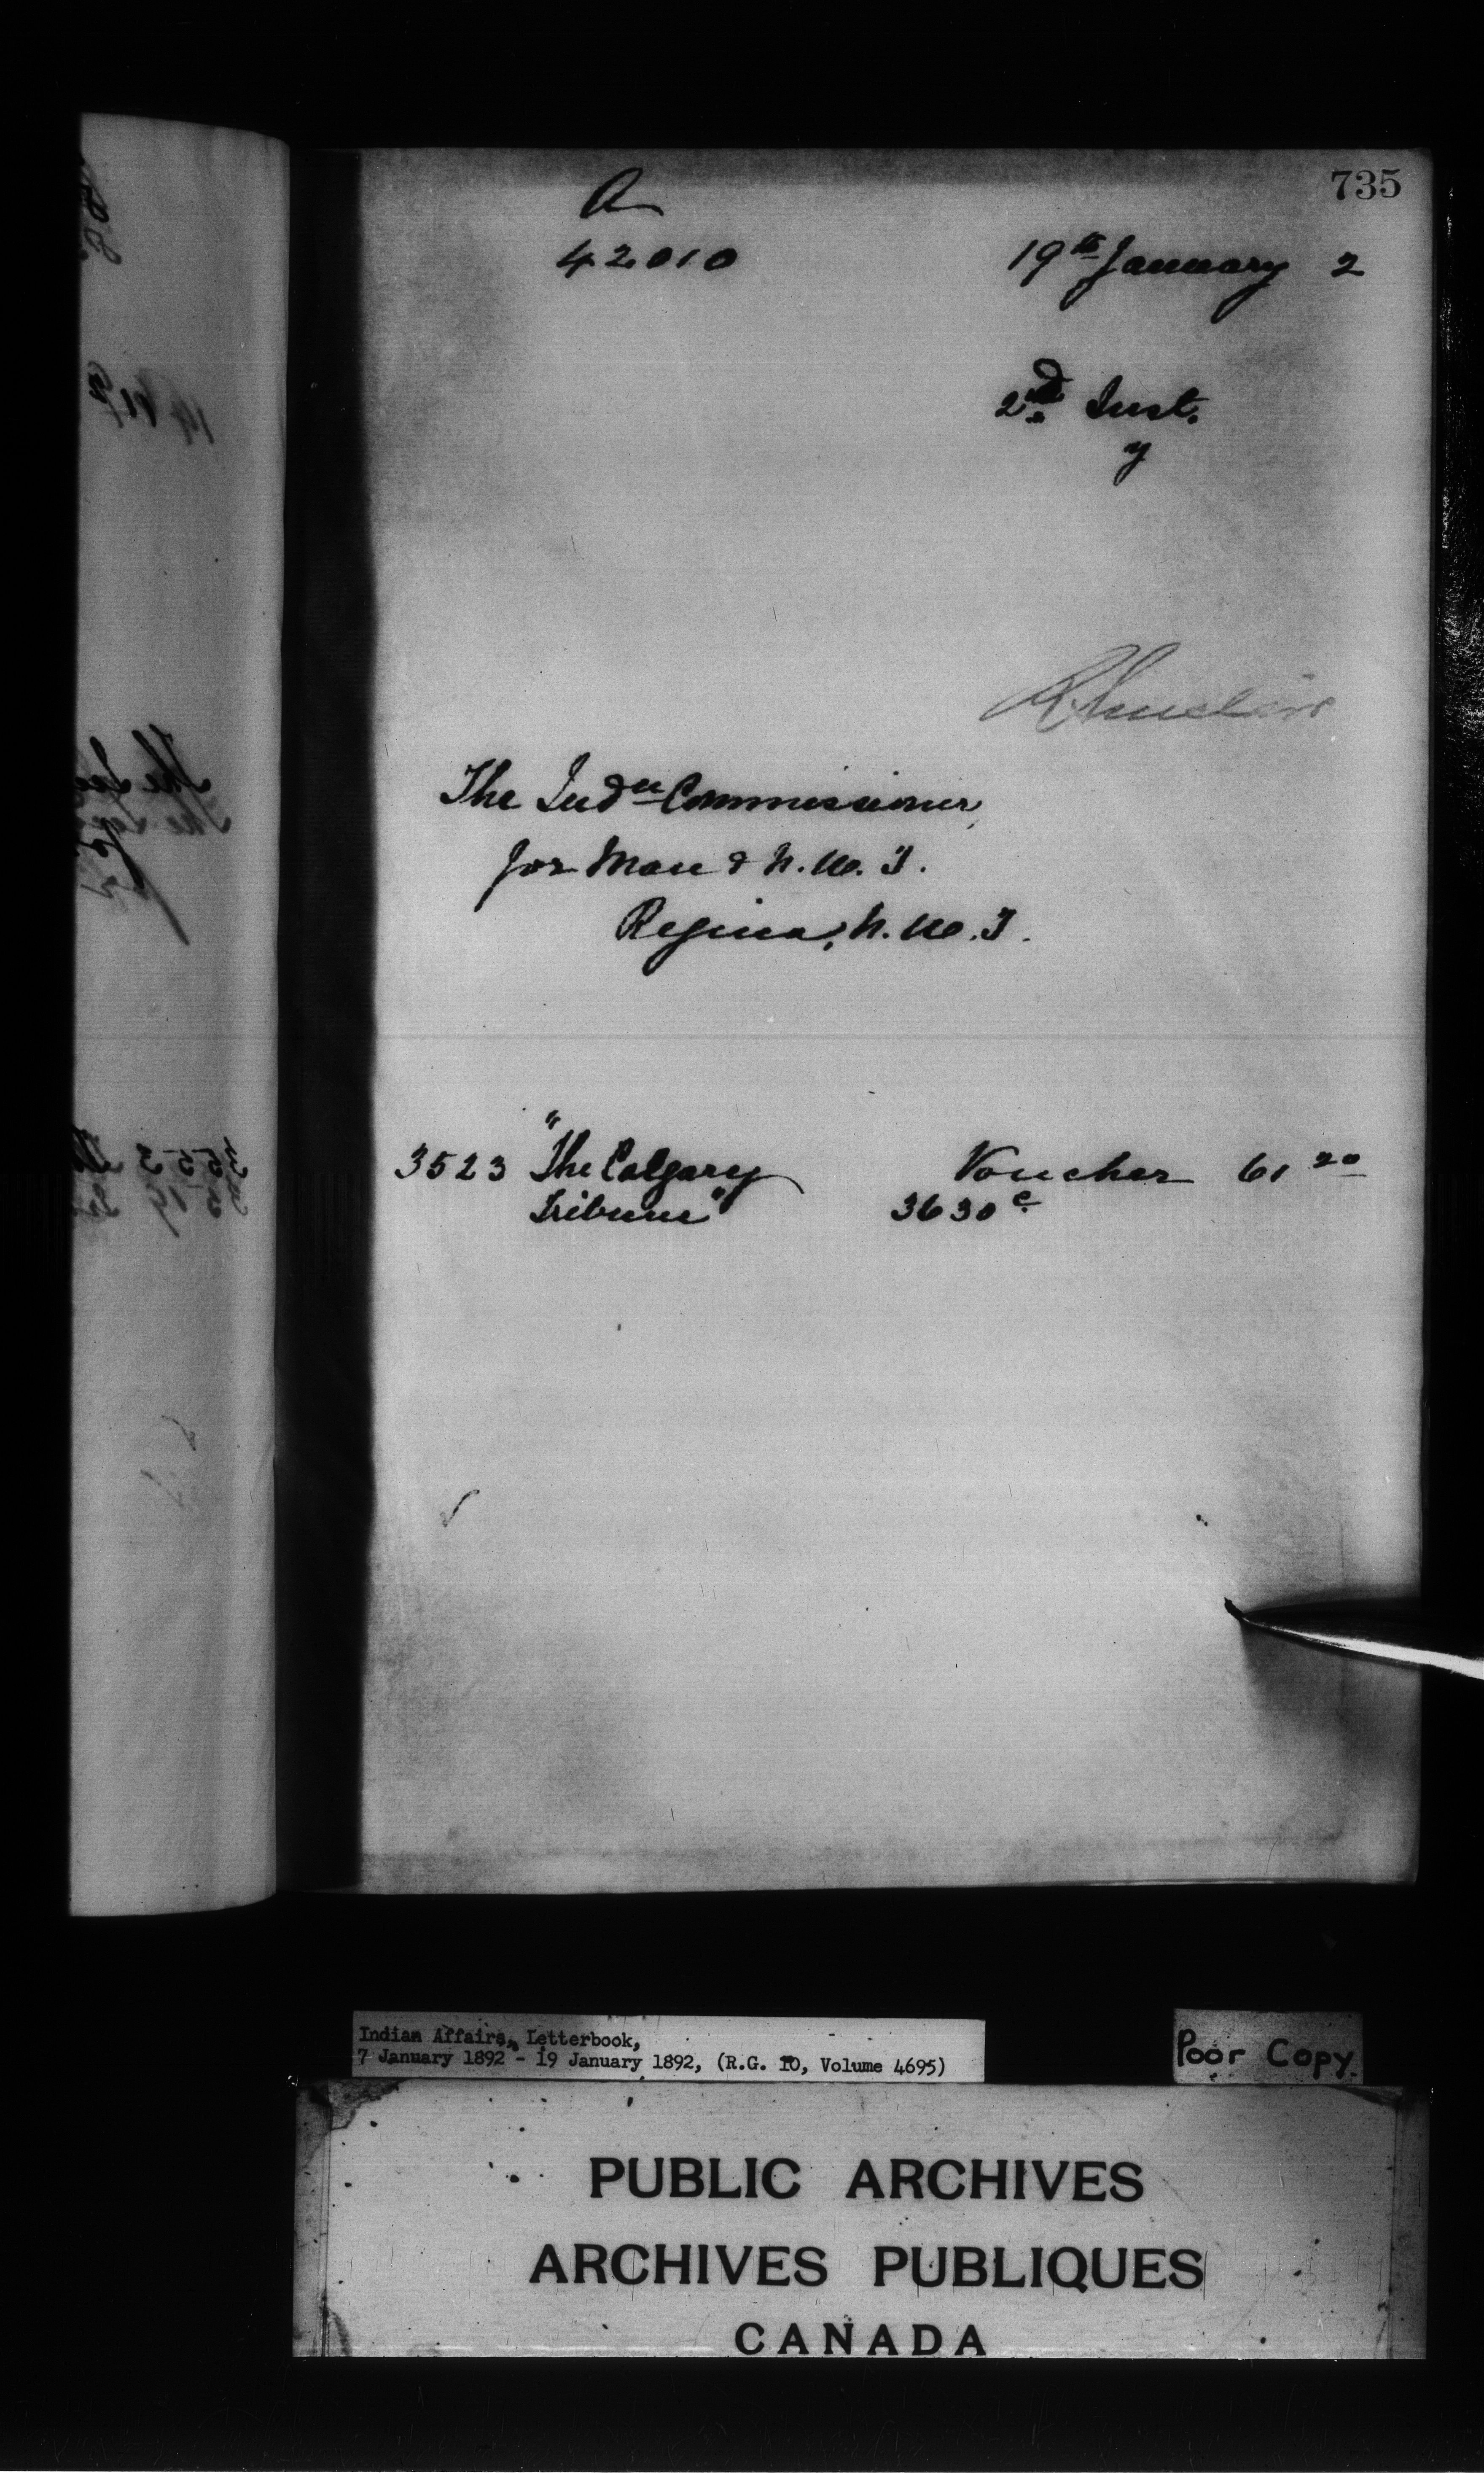 735
A
42010
19th January 2
2nd Inst.
y
The Indn Commissioner,
for Man & N.W.T.
Regina, N.W.T.
3523 "The Calgary Voucher 61 20
Tribune" 3630 c
Indian Affairs, Letterbook,
7 January 1892 - 19 January 1892, (R.G. 10, Volume 4695)
Poor Copy.
PUBLIC ARCHIVES
ARCHIVES PUBLIQUES
CANADA